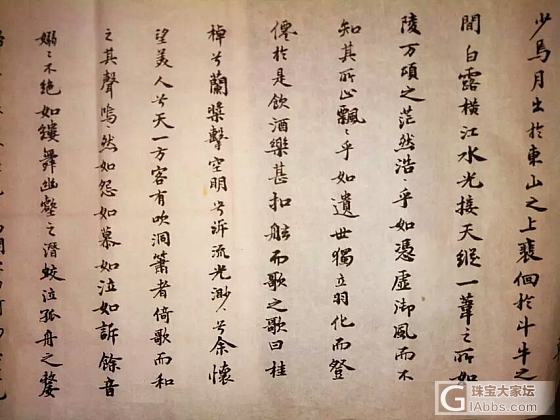 少焉月出於東山之上裵佪於斗牛之
間白露橫江水光接天縱一葦之所如
陵万頃之茫然浩〻乎如憑虛御風而不
知其所止飄〻乎如遺世獨立羽化而登
僊於是飲酒樂甚扣舷而歌之歌曰桂
棹兮蘭槳擊空明兮泝流光渺〻兮余懷
望美人兮天一方客有吹洞簫者倚歌而和
之其聲嗚〻然如怨如慕如泣如訴餘音
嫋〻不絕如縷舞幽壑之潛蛟泣孤舟之嫠
珠宝大家坛
GIAbbs.com